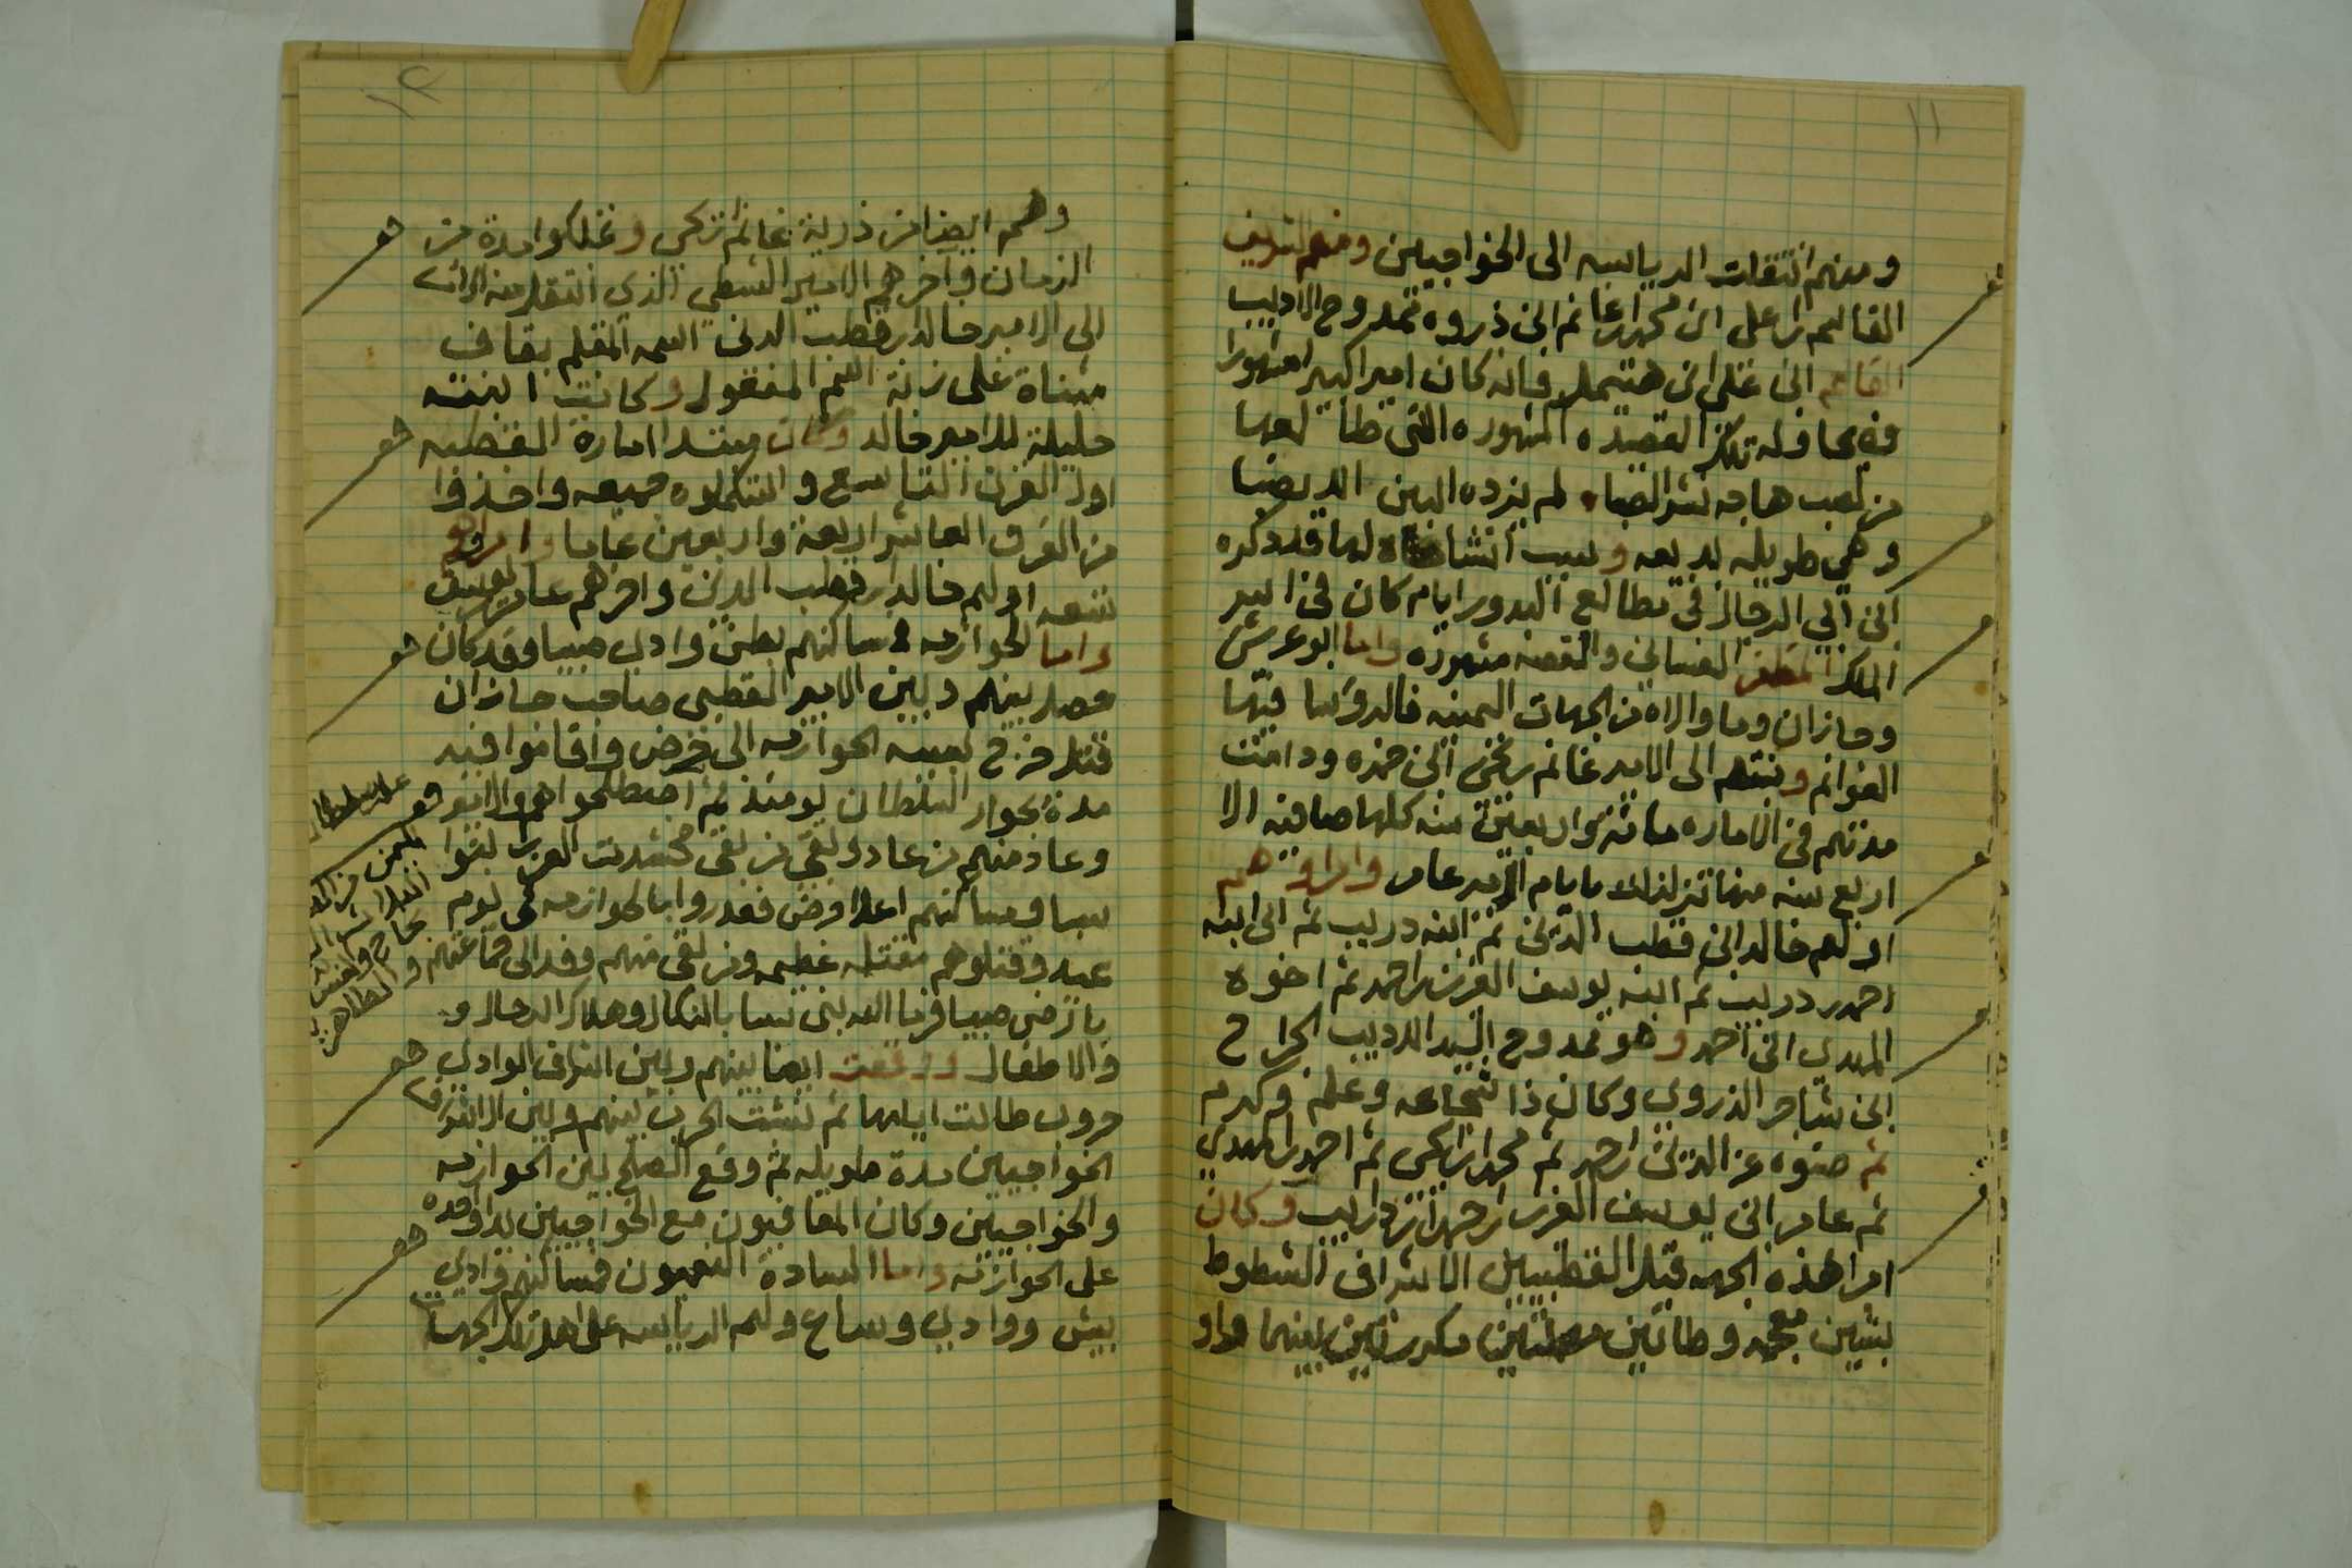 ١١
ومنهم انتقلت الرياسه الى الخواجيين ومنهم الشريف
القاسم بن على ابن محمد بن غانم ابن ذروه ممدوح الاديب
القاسم ابن على ابن هتيمل فانه كان اميرا كبيرا مشهورا
وفيه قال تلك القصيده المشهوره التى طالعها
من لصب هاجه نشر الصبا لم يزده البين الا نصبا
وهي طويله بديعه وسبب انشاه لها قد ذكره
ابن ابي الرجال في مطالع البدور ايام كان في اسر
الملك المظفر الغساني والقصه مشهوره واما ابو عريش
وجازان وما والاه من الجهات اليمنيه فالرؤسا فيها
الغوانم ونسبتهم الى الامير غانم بن يحيى ابن حمزه ودامت
مدتهم في الاماره مائة واربعين سنه كلها صافيه الا
اربع سنه منها تزلزلا بايام الامير عامر وامراؤهم
اولهم خالد ابن قطب الدين ثم ابنه دريب ثم الى ابنه
احمد بن دريب ثم ابنه يوسف العزيز بن احمد ثم اخوه
المهدي ابن احمد وهو ممدوح السيد الاديب الجراح
ابن شاجر الذروي وكان ذا شجاعه وعلم وكرم
ثم صنوه عز الدين بن احمد ثم محمد بن يحيى ثم احمد بن المهدي
ثم عامر ابن يوسف العزيز بن احمد بن دريب وكان
امرا هذه الجهه قبل القطبيين الاشراف الشطوط
بشين معجمه وطائين مهملتين مكررتين بينهما واو
١٢
وهم ايضا من ذرية غانم بن يحيى وتملكوا مدة من
الزمان وآخرهم الامير الشطي الذي انتقلت منه الرياسه
الى الامير خالد بن قطب الدين اسمه المقلم بقاف
مثناة على زنة اسم المفعول وكانت ابنته
حليلة للامير خالد وكان مبتدا امارة القطبيه
اول القرن التاسع واستكملوه جميعه واخذوا
من القرن العاشر اربعة واربعين عاما وامراؤهم
تسعه اولهم خالد بن قطب الدين واخرهم عامر بن يوسف
واما الخوازمه فمساكنهم بطن وادي صبيا وقد كان
حصل بينهم وبين الامير القطبي صاحب جازان
قتل خرج بسببه الخوازمه الى حرض واقاموا فيه
مدة بجوار السلطان يومئذ ثم اصطلحوا هم والامير
وعاد منهم من عاد وبقي من بقي فحشدت العرب بنوا
سبا ومساكنهم اعلا حرض فغدروا بالخوازمه في يوم
عيد وقتلوهم مقتله عظيمه ومن بقي منهم وفد الى جماعتهم
بارض صبيا فرما الله بني سبا بالنكال وهلاك الرجال و
والاطفال ووقعت ايضا بينهم وبين اشراف الوادي
حروب طالت ايامها ثم نشبت الحرب بينهم وبين الاشراف
الخواجيين مدة طويله ثم وقع الصلح بين الخوازمه
والخواجيين وكان المعافيون مع الخواجيين يدا واحده
على الخوازمه واما السادة النعميون فمساكنهم وادي
بيش ووادي وساع ولهم الرياسه على اهل تلك الجهات